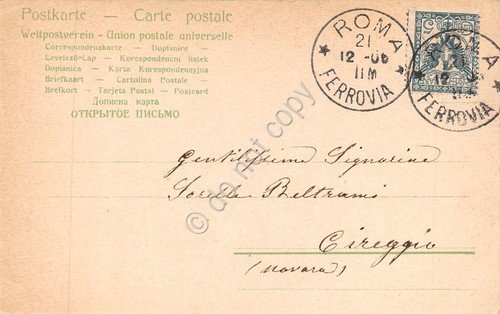 Postkarte — Carte postale
Weltpostverein - Union postale universelle
Correspondenzkarte - Dopisnice -
Levelező-Lap - Korespondencni listek
Dopisnica - Karta Korespondencyjna
Briefkaart - Cartolina Postale -
Brefkort - Tarjeta Postal - Postcard
Дописна карта
ОТКРЫТОЕ ПИСЬМО
ROMA
21
12 -06
11M
FERROVIA
MA
12
11M
FERROVIA
Gentilissime Signorine
Sorelle Beltrami
Cireggio
(Novara)
© do not copy